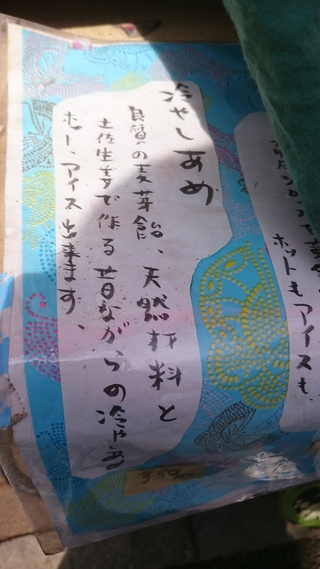 ホットもアイスも
冷やしあめ
良質の麦芽飴、天然材料と
土佐生姜で作る昔ながらの冷やあめ
ホット、アイス出来ます。